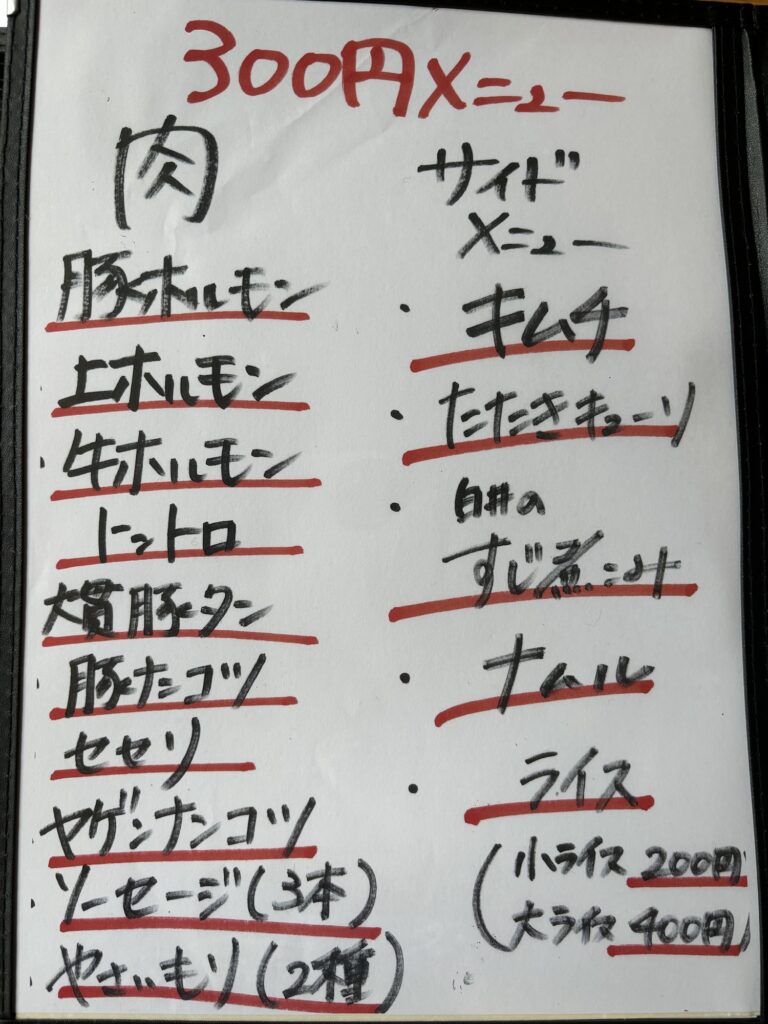 300円メニュー
肉
豚ホルモン
上ホルモン
・牛ホルモン
トントロ
大貫豚タン
・豚ナンコツ
セセリ
ヤゲンナンコツ
・ソーセージ(3本)
・やさいもり(2種)
サイド
メニュー
・キムチ
・たたきキューリ
・白井の
すじ煮こみ
・ナムル
・ライス
(小ライス 200円
大ライス 400円)